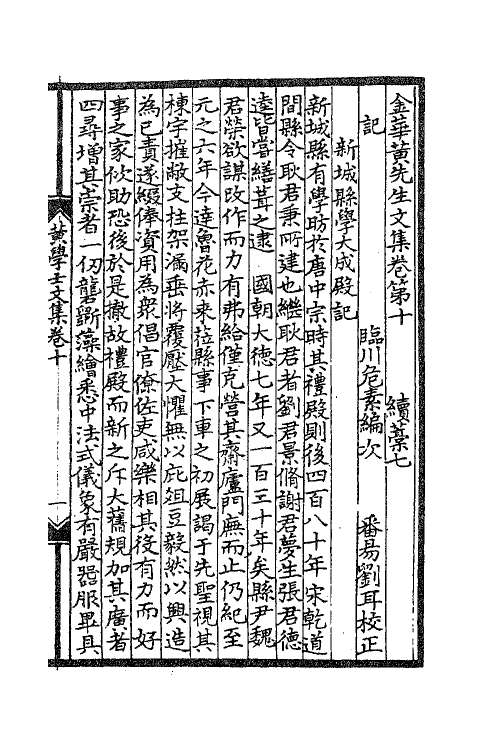 金華黃先生文集卷第十　　續藁七
記　　臨川危素編次　　番易劉耳校正
新城縣學大成殿記
新城縣有學昉於唐中宗時其禮殿則後四百八十年宋乾道
間縣令耿君秉所建也繼耿君者劉君景脩謝君夢生張君德
逵皆嘗繕葺之逮　國朝大德七年又一百三十年矣縣尹魏
君榮欲謀改作而力有弗給僅克營其齋廬門廡而止仍紀至
元之六年今達魯花赤來蒞縣事下車之初展謁于先聖視其
棟宇摧敝支柱架漏垂將覆壓大懼無以庇俎豆毅然以興造
為已責遂綴俸資用為衆倡官僚佐吏咸樂相其役有力而好
事之家佽助恐後於是撤故禮殿而新之斥大舊規加其廣者
四尋增其崇者一仞礱斲藻繪悉中法式儀象有嚴器服畢具
黃學士文集卷十
一